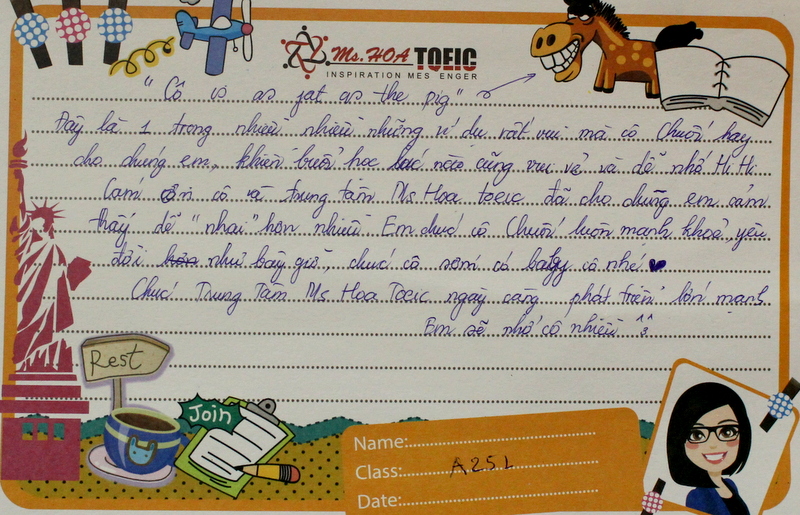 Ms. HOA TOEIC
INSPIRATION MES ENGER
"Cô is as fat as the pig"
Đây là 1 trong nhiều nhiều những ví dụ rất vui mà cô Chuối hay
cho chúng em, khiến buổi học lúc nào cũng vui vẻ và dễ nhớ Hi Hi
Cảm ơn cô và trung tâm Ms Hoa toeic đã cho chúng em cảm
thấy dễ "nhai" hơn nhiều Em chúc cô Chuối luôn mạnh khoẻ, yêu
đời như bây giờ, chúc cô sớm có baby cô nhé
Chúc Trung Tâm Ms Hoa Toeic ngày càng phát triển lớn mạnh
Em sẽ nhớ cô nhiều ^^
Rest
Join
Name:
Class: A25L
Date: